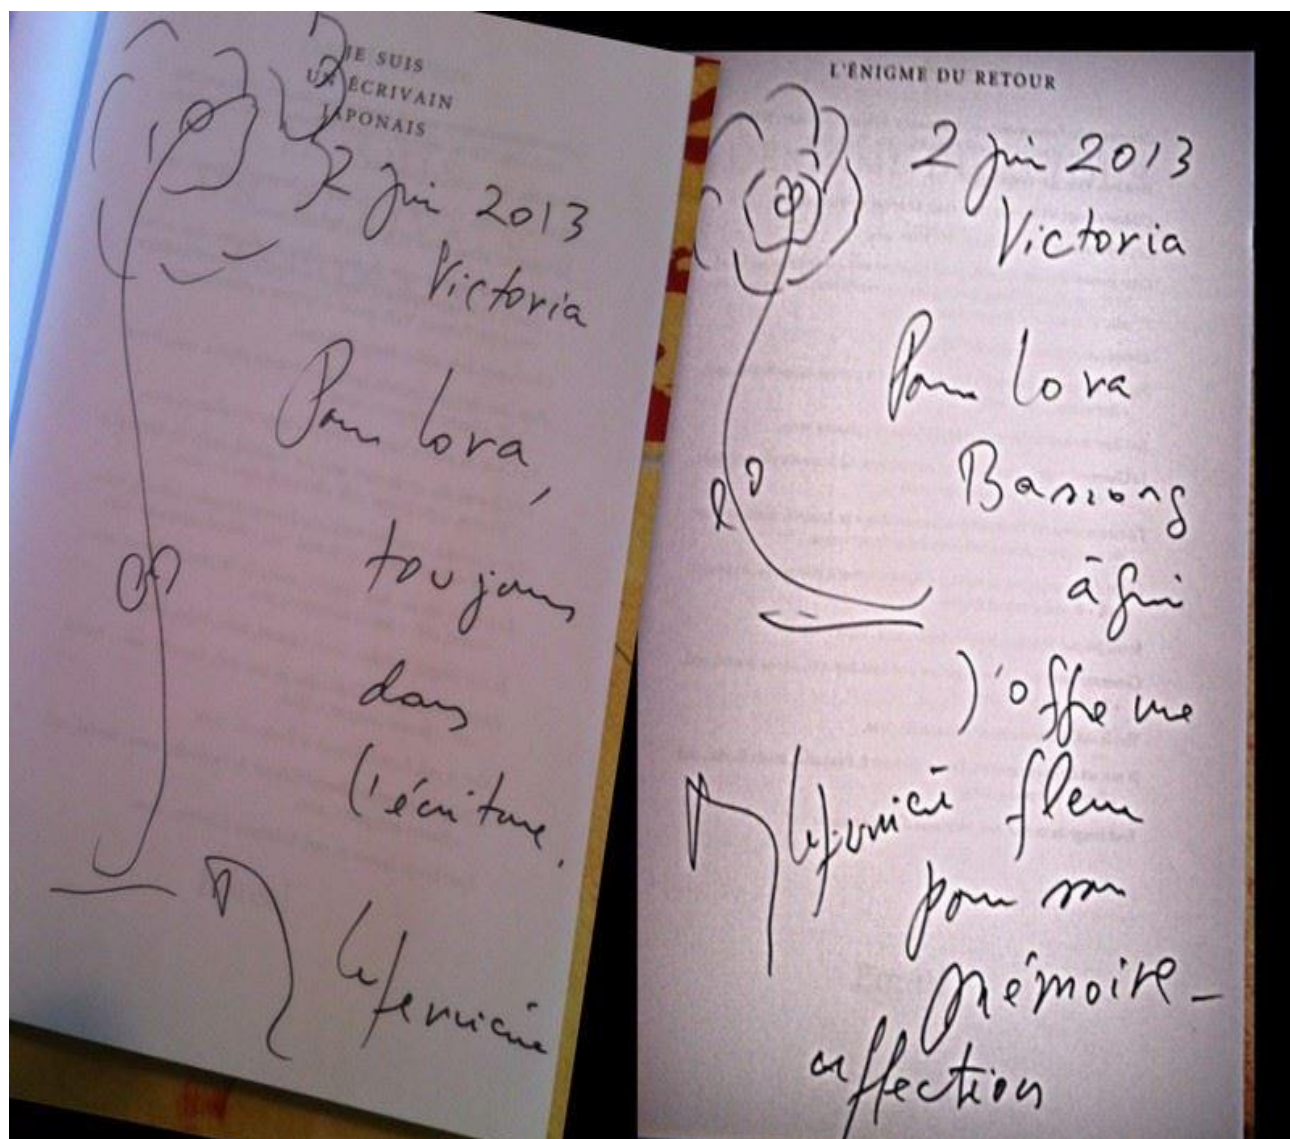 JE SUIS
UN ÉCRIVAIN
JAPONAIS
2 juin 2013
Victoria
Pour Lora,
toujours
dans
l'écriture.
Laferrière
L'ÉNIGME DU RETOUR
2 juin 2013
Victoria
Pour Lora
à qui
J'offre une
fleur
Laferrière
pour sa
mémoire -
affection